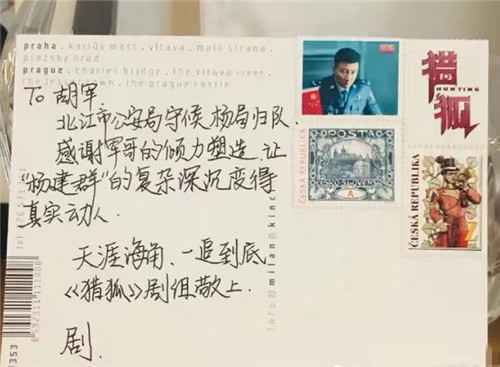 praha . karlův most, vltava, malá strana,
pražský hrad
prague . charles bridge, the vltava river,
the lesser town, the prague castle
TO 胡军
北江市公安局守候杨局归队.
感谢军哥的倾力塑造,让
“杨建群”的复杂深沉变得
真实动人.
天涯海角、一追到底
《猎狐》剧组敬上.
剧.
猎狐
HUNTING
POSTA
ČESKO-SLOVENSKÁ
ČESKÁ REPUBLIKA
A
ČESKÁ REPUBLIKA
Z
milan
kinc
8592311111808
353